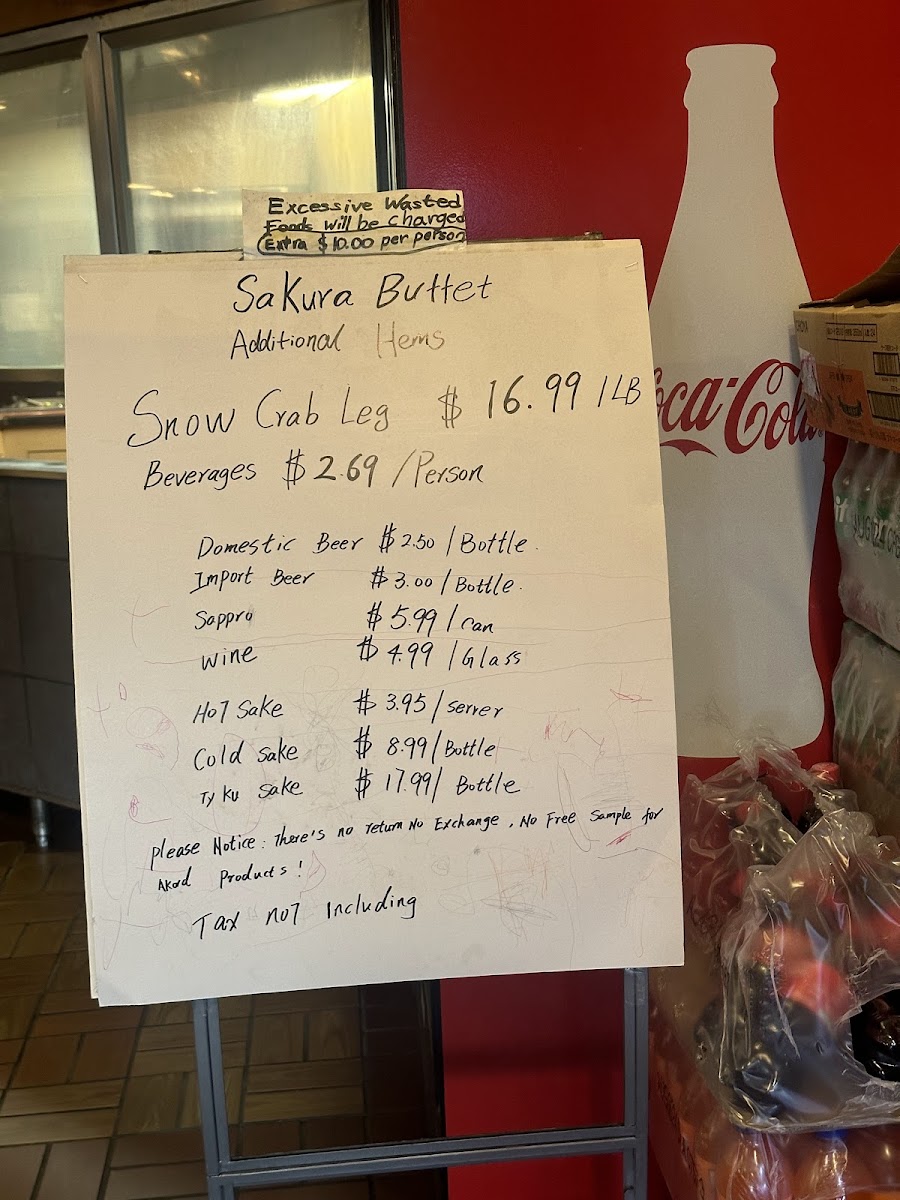 Excessive Wasted
Foods will be charged
Extra $10.00 per person
Sakura Buffet
Additional Items
Snow Crab Leg $ 16.99 / LB
Beverages $ 2.69 / Person
Domestic Beer $ 2.50 / Bottle.
Import Beer $ 3.00 / Bottle.
Sappro $ 5.99 / can
wine $ 4.99 / Glass
Hot Sake $ 3.95 / server
Cold Sake $ 8.99 / Bottle
Ty Ku Sake $ 17.99 / Bottle
Please Notice: There's no return No Exchange, No Free Sample for
Akord Products!
Tax not Including
Coca-Cola